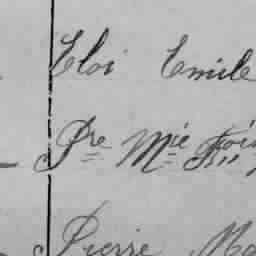 Eloi Emile
Pre Mie
Pierre Ma